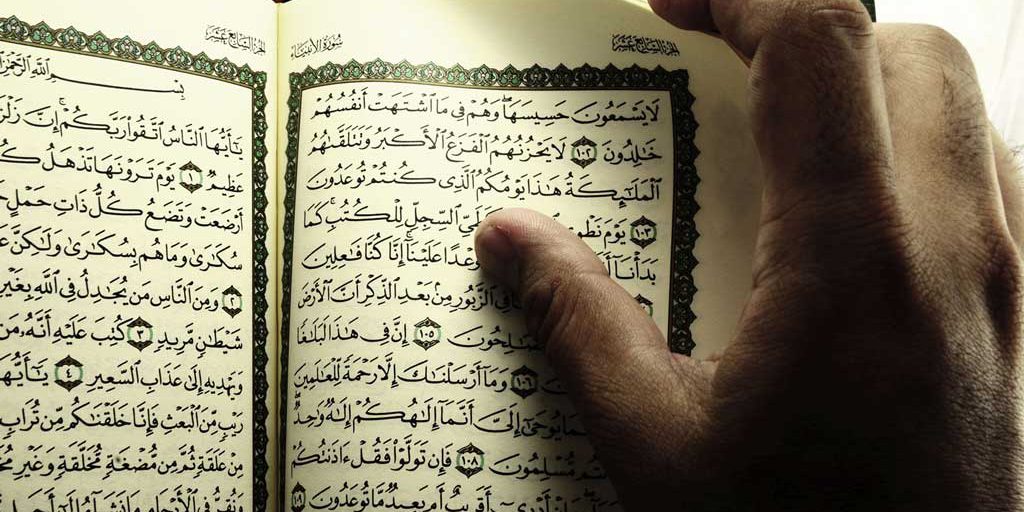 الجزء السابع عشر
سورة الأنبياء
لَا يَسْمَعُونَ حَسِيسَهَا ۖ وَهُمْ فِي مَا ٱشْتَهَتْ أَنفُسُهُمْ
خَٰلِدُونَ ١٠٢ لَا يَحْزُنُهُمُ ٱلْفَزَعُ ٱلْأَكْبَرُ وَتَتَلَقَّىٰهُمُ
ٱلْمَلَٰٓئِكَةُ هَٰذَا يَوْمُكُمُ ٱلَّذِي كُنتُمْ تُوعَدُونَ
١٠٣ يَوْمَ ٱلسِّجِلِّ لِلْكُتُبِ ۚ كَمَا
بَدَأْنَآ وَعْدًا عَلَيْنَآ ۚ إِنَّا كُنَّا فَٰعِلِينَ
فِي ٱلزَّبُورِ مِنۢ بَعْدِ ٱلذِّكْرِ أَنَّ ٱلْأَرْضَ
١٠٥ إِنَّ فِي هَٰذَا لَبَلَٰغًا
١٠٦ وَمَآ أَرْسَلْنَٰكَ إِلَّا رَحْمَةً لِّلْعَٰلَمِينَ
يُوحَىٰٓ إِلَيَّ أَنَّمَآ إِلَٰهُكُمْ إِلَٰهٌ وَٰحِدٌ
مُّسْلِمُونَ ١٠٨ فَإِن تَوَلَّوْا۟ فَقُلْ ءَاذَنتُكُمْ
أَدْرِيٓ أَقَرِيبٌ أَم بَعِيدٌ مَّا تُوعَدُونَ ١٠٩
الجزء السابع عشر
بِسْمِ ٱللَّهِ ٱلرَّحْمَٰنِ
يَٰٓأَيُّهَا ٱلنَّاسُ ٱتَّقُوا۟ رَبَّكُمْ ۚ إِنَّ
عَظِيمٌ ١ يَوْمَ تَرَوْنَهَا تَذْهَلُ
أَرْضَعَتْ وَتَضَعُ كُلُّ ذَاتِ حَمْلٍ
سُكَٰرَىٰ وَمَا هُم بِسُكَٰرَىٰ وَلَٰكِنَّ
٢ وَمِنَ ٱلنَّاسِ مَن يُجَٰدِلُ فِي ٱللَّهِ بِغَيْرِ
شَيْطَٰنٍ مَّرِيدٍ ٣ كُتِبَ عَلَيْهِ أَنَّهُۥ مَن
وَيَهْدِيهِ إِلَىٰ عَذَابِ ٱلسَّعِيرِ ٤ يَٰٓأَيُّهَا
رَيْبٍ مِّنَ ٱلْبَعْثِ فَإِنَّا خَلَقْنَٰكُم مِّن تُرَابٍ
مِنْ عَلَقَةٍ ثُمَّ مِن مُّضْغَةٍ مُّخَلَّقَةٍ وَغَيْرِ
وَنُقِرُّ فِي ٱلْأَرْحَامِ مَا نَشَآءُ إِلَىٰٓ أَجَلٍ